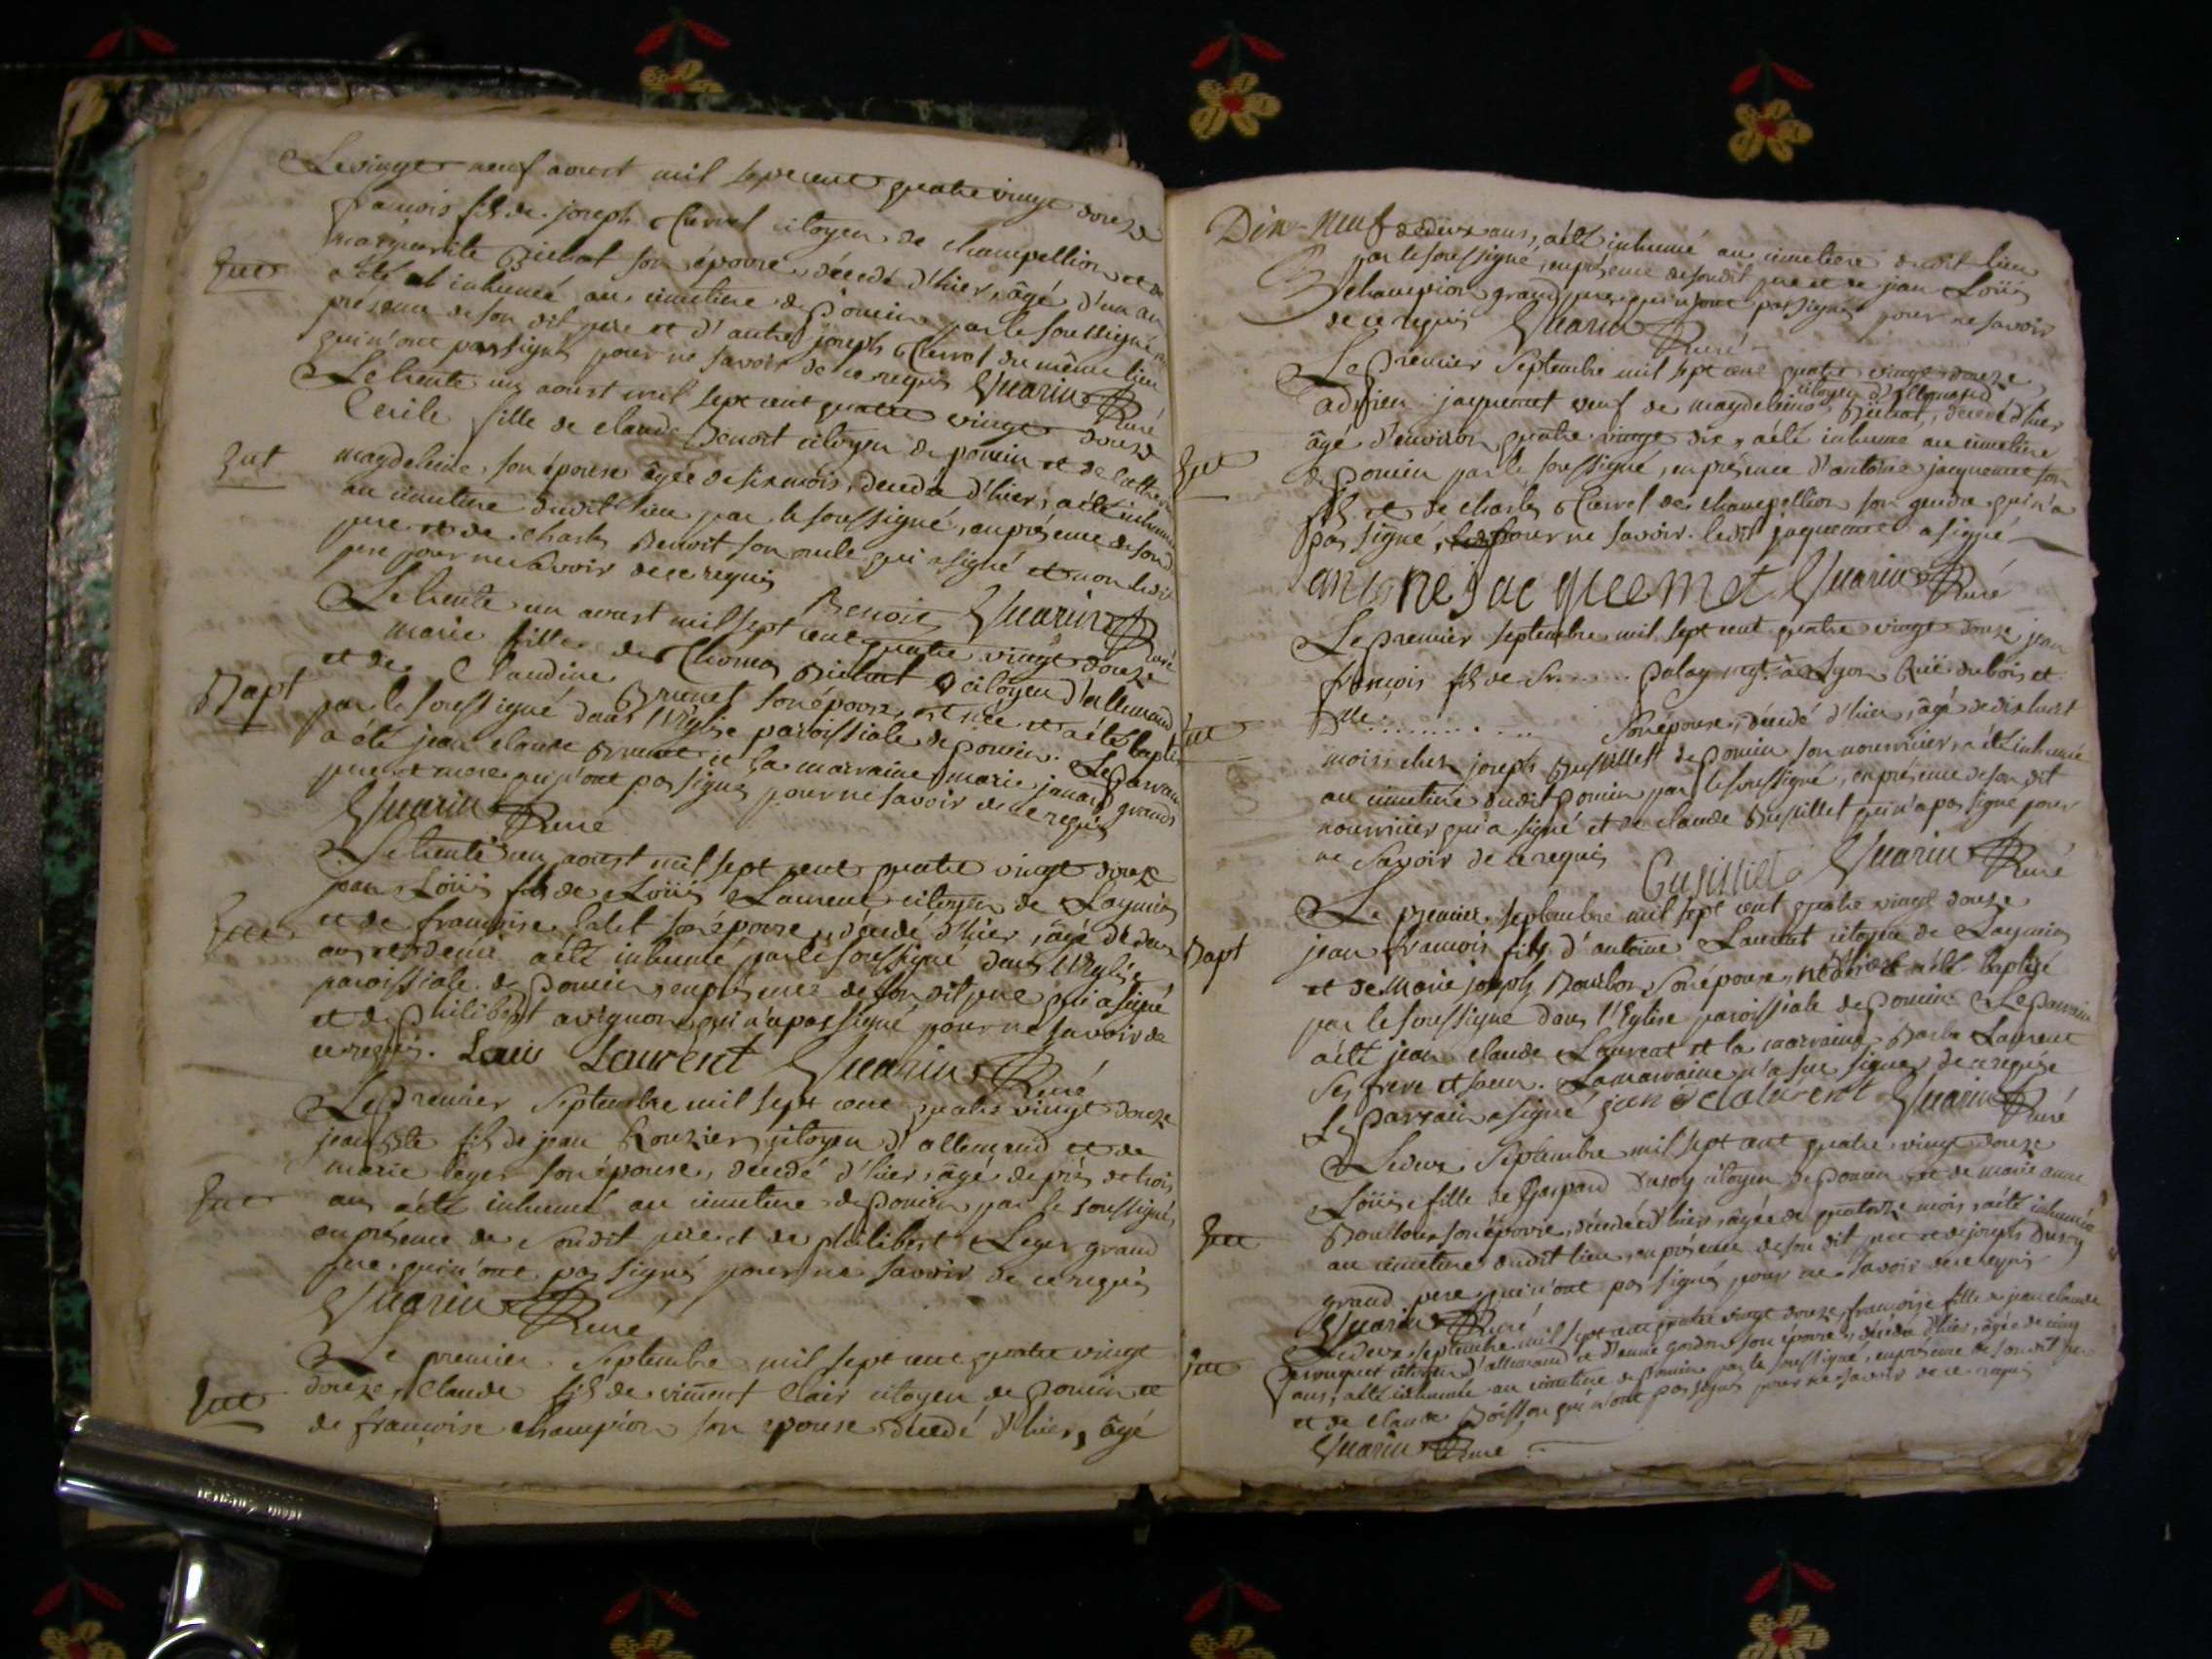 Le vingt neuf aoust mil sept cent quatre vingt douze
françois fils de joseph Curvel citoyen de champellion et de
marguerite Bichat son épouse, décédé d'hier, âgé d'un an
Ent
a été inhumé au cimetiere de Pomin par le soussigné en
présence de son dit pere et d'autre joseph Curvel du même lieu
qui n'ont pas signés pour ne savoir de ce requis Guarin Curé
Le trente un aoust mil sept cent quatre vingt douze
Cecile fille de claude Benoit citoyen de pomin et de
Ent
magdeleine, son épouse âgée de six mois, décédée d'hier, a été inhumée
au cimetiere dudit lieu par le soussigné, en présence de sond
pere et de charles Benoit son oncle qui a signé et non ledit
pere pour ne savoir de ce requis
Benoit Guarin Curé
Le trente un aoust mil sept cent quatre vingt douze
marie fille de Thomas Bichat citoyen d'allemand
et de Claudine Brunet son épouse, est née et a été baptisée
Bapt
par le soussigné dans l'Eglise paroissiale de Pomin. Le Parrain
a été jean claude Brunet et la marraine marie janard grands
pere et mere qui n'ont pas signés pour ne savoir de ce requis
Guarin Curé
Le trente un aoust mil sept cent quatre vingt douze
jean Loüis fils de Loüis Laurent citoyen de Lagnieu
Ent
et de françoise son épouse, décédé d'hier, âgé de deux
ans et demie a été inhumé par le soussigné dans l'Eglise
paroissiale de Pomin, en présence de son dit pere qui a signé
et de Philibert avignon qui n'a pas signé pour ne savoir de
ce requis. Louis Laurent Guarin Curé
Le Premier Septembre mil sept cent quatre vingt douze
jean Bte fils de jean Rouzier citoyen d'allemand et de
marie leger son épouse, décédé d'hier, âgé de près de trois
Ent
ans a été inhumé au cimetiere de Pomin par le soussigné,
en présence de Sondit pere et de philibert Leger grand
pere, qui n'ont pas signés pour ne savoir de ce requis
Guarin Curé
Le premier Septembre mil sept cent quatre vingt
Ent
douze, Claude fils de vincent Clair citoyen de Pomin et
de françoise champion son épouse décédé d'hier, âgé
Dix-Neuf
de deux ans, a été inhumé au cimetiere dudit lieu
par le soussigné, en présence de sondit pere et de jean Loüis
champion grand pere qui n'ont pas signés pour ne savoir
de ce requis Guarin Curé
Le Premier Septembre mil sept cent quatre vingt douze
citoyen d'allemand
adrien jaquemet veuf de magdeleine Bichat, décédé d'hier
âgé d'environ quatre vingt dix, a été inhumé au cimetiere
Ent
de Pomin par le soussigné, en présence d'antoine jacquemet son
fils et de charles Curvel de champellion son gendre qui n'a
pas signé, pour ne savoir. ledit jaquemet a signé
antoine jacqueemet Guarin Curé
Le Premier septembre mil sept cent quatre vingt douze jean
françois fils de Sr. ..... Palay negt. à Lyon Rüe du bois et
Ent
Dlle. .......... Son épouse, décédé d'hier, âgé de dix huit
mois chez joseph Busillet de Pomin son nourricier, a été inhumé
au cimetiere dudit Pomin par le soussigné, en présence de son dit
nourricier qui a signé et de claude Busillet qui n'a pas signé pour
ne savoir de ce requis Guarin Curé
Le premier septembre mil sept cent quatre vingt douze
Bapt
jean françois fils d'antoine Laurent citoyen de Lagnieu
et de Marie joseph Bourbon Son épouse, né d'hier et a été baptisé
par le soussigné dans l'Eglise paroissiale de Pomin. Le Parrain
a été jean claude Laurent et la marraine Laurent
ses frere et soeur. La marraine n'a sue signer de ce requise
Le Parrain a signé Guarin Curé
Le deux Septembre mil sept cent quatre vingt douze
Loüise fille de Gaspard Dusoy citoyen de Pomin et de marie anne
Ent
son épouse, décédée d'hier, âgée de quatorze mois, a été inhumée
au cimetiere dudit lieu, en présence de son dit pere et de joseph Dusoy
grand pere qui n'ont pas signés pour ne savoir de ce requis
Guarin Curé
Le deux septembre mil sept cent quatre vingt douze, françoise fille de jean claude
Ent
citoyen d'allemand et d'anne son épouse, décédée d'hier, âgée de cinq
ans, a été inhumée au cimetiere de Pomin par le soussigné, en présence de sondit pere
et de claude qui n'ont pas signés pour ne savoir de ce requis
Guarin Curé